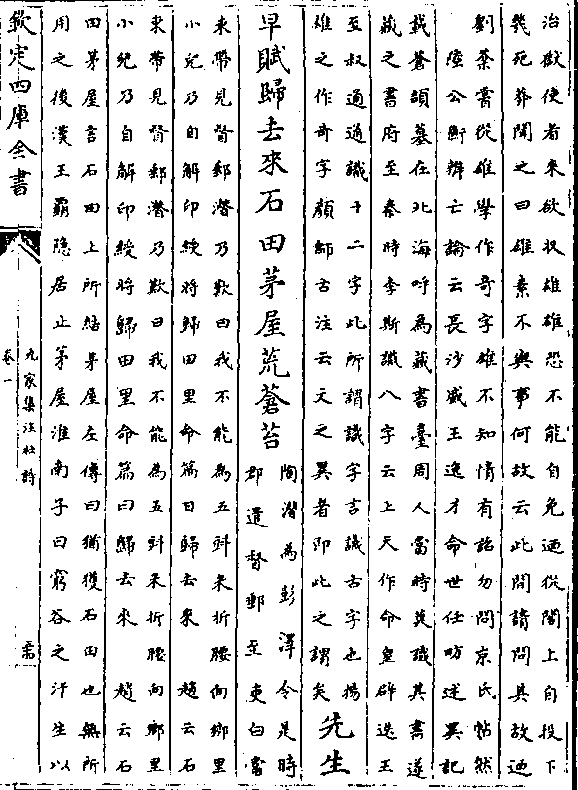 治獄使者來欲収雄雄恐不能自免迺從閣上自投下
幾死莽聞之曰雄素不與事何故云此間請問其故迺
劉棻嘗從雄學作奇字雄不知情有詔勿問京氏帖然
陸公衡辨亡論云長沙威王逸才命世任昉述異記
載蒼頡墓在北海呼為藏書臺周人當時莫識其書遂
藏之書府至秦時李斯識八字云上天作命皇辟迭王
至叔通通識十二字此所謂識字言識古字也揚
雄之作奇字顏師古注云文之異者即此之謂矣
先生
早賦歸去來石田茅屋荒蒼苔
陶潛為彭澤令是時
郡遣督郵至吏白當
束帶見督郵潛乃歎曰我不能為五㪷米折腰向鄉里
小兒乃自解印綬將歸田里命篇曰歸去來 趙云石
束帶見督郵潛乃歎曰我不能為五㪷米折腰向鄉里
小兒乃自解印綬將歸田里命篇曰歸去來 趙云石
田茅屋言石田上所結茅屋左傳曰猶獲石田也無所
用之後漢王霸隱居止茅屋淮南子曰窮谷之汙生以
欽定四庫全書
九家集注杜詩
卷一